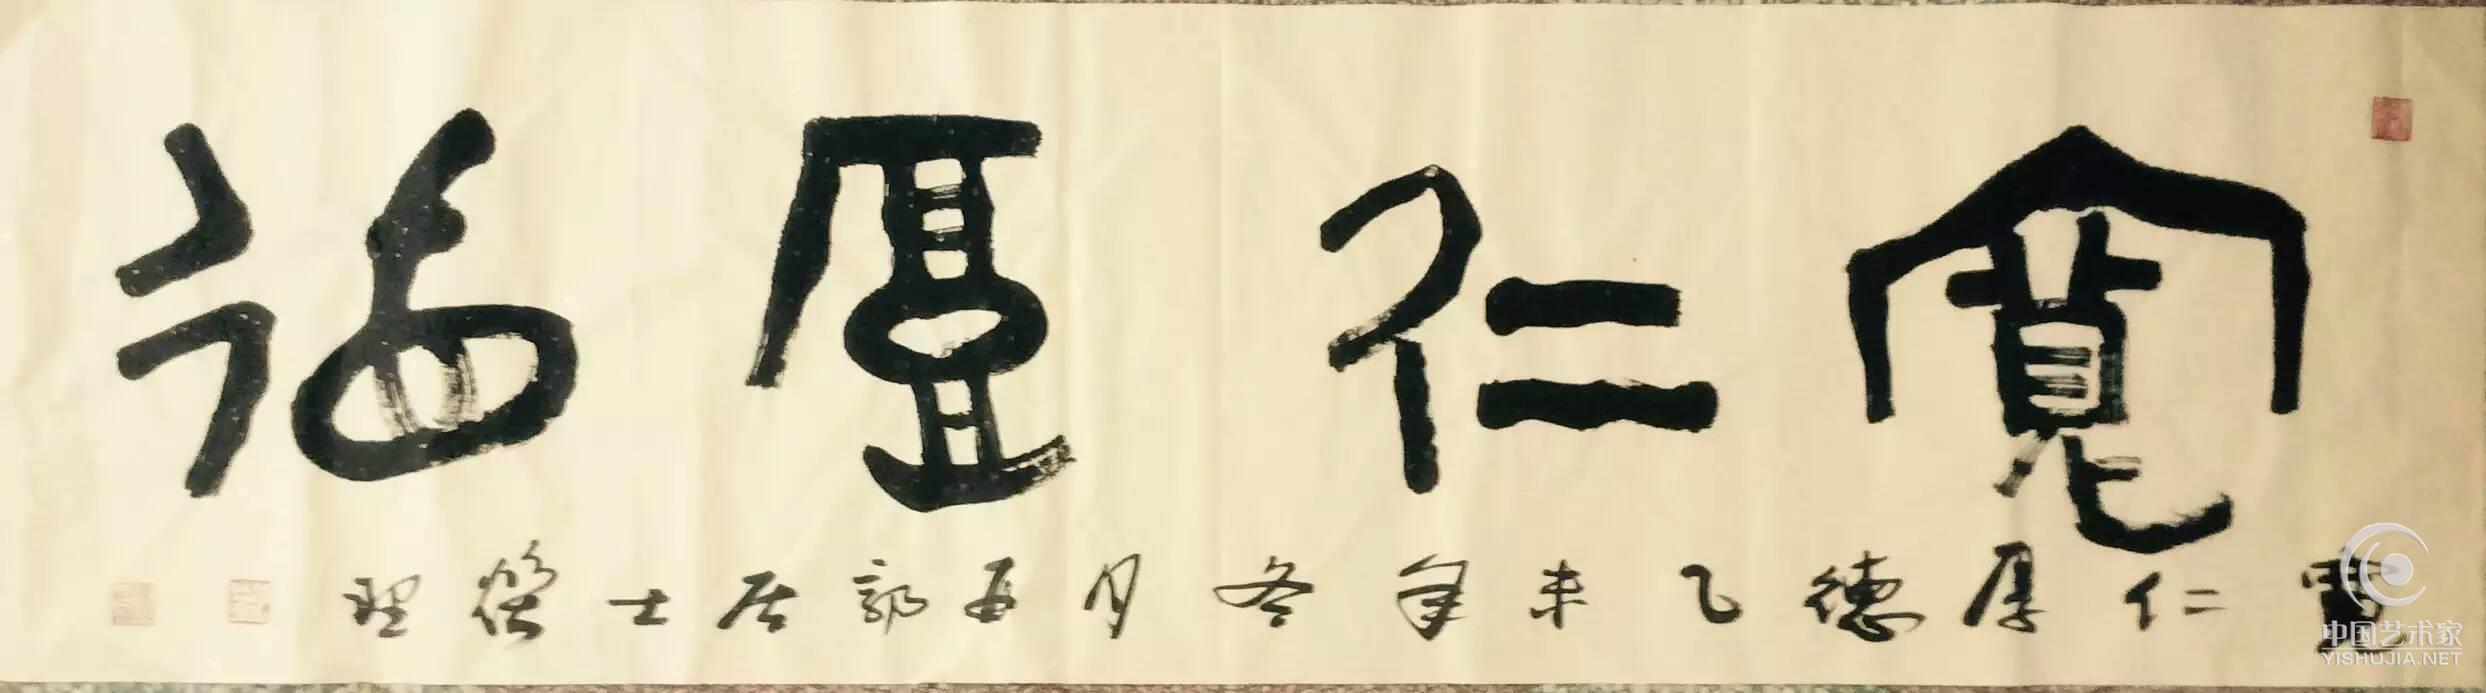 寬仁厚德
寬仁厚德乙未年冬月
居士
理
中国艺术家
YISHUJIA.NET